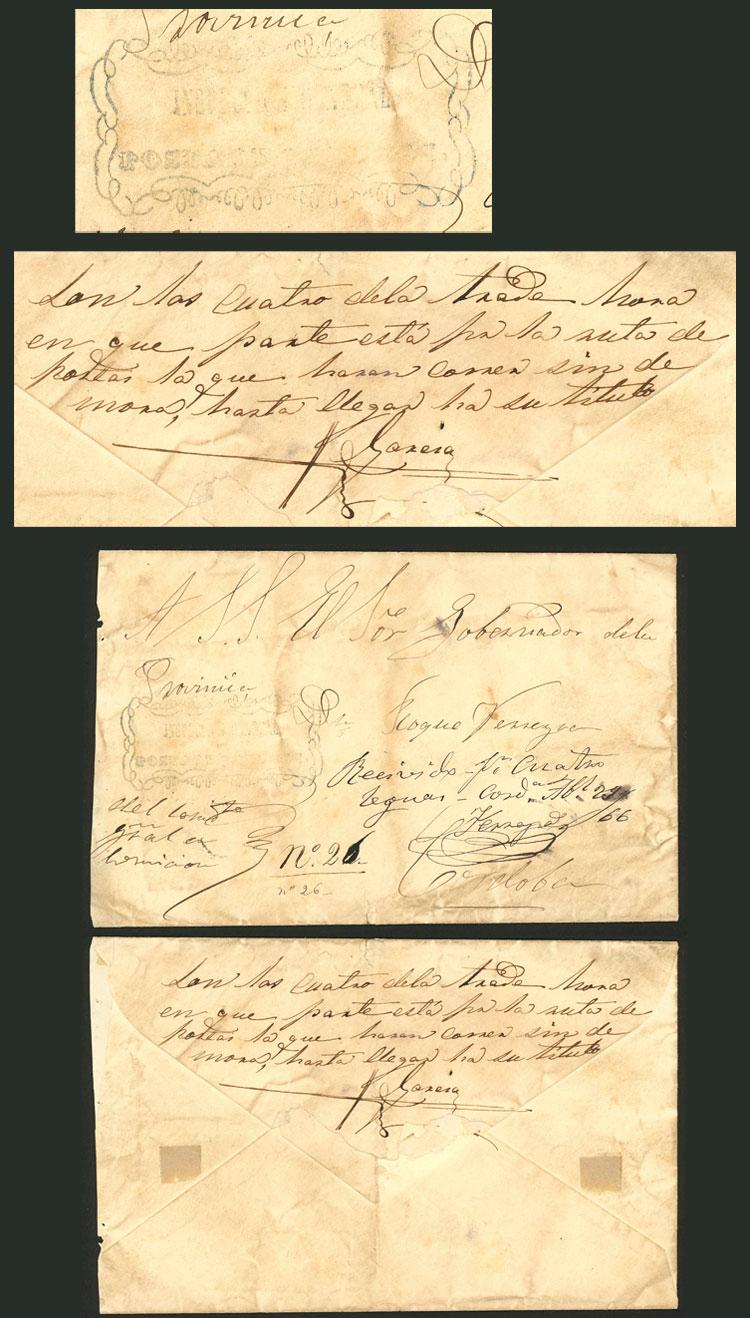 Provincia
Son las cuatro dela trade hora
en que parte está pr la ruta de
postas la que haran correr sin de
mora, hasta llegar ha su titulo
Garcia
A S.S. El Sor Gobernador dela
Provincia Dn Roque Ferreyra
Recivido pr Cuatro
leguas - Cordª 29/66
Ferreyra
del
gral en
Nº. 26
nº 26
Cordoba
Son las cuatro dela trade hora
en que parte está pr la ruta de
postas la que haran correr sin de
mora, hasta llegar ha su titulo
Garcia